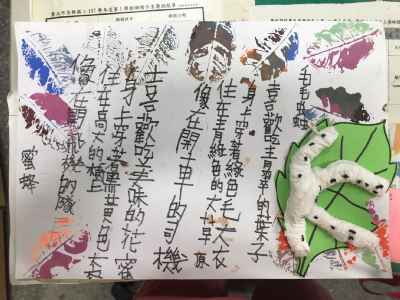 毛毛蟲
喜歡吃青翠的葉子
身上穿著綠色毛大衣
住在青綠色的大草原
像在開車的司機
喜歡吃美味的花蜜
身上穿著黃色大衣
住在高大的樹上
像在開飛機的隊
蜜蜂